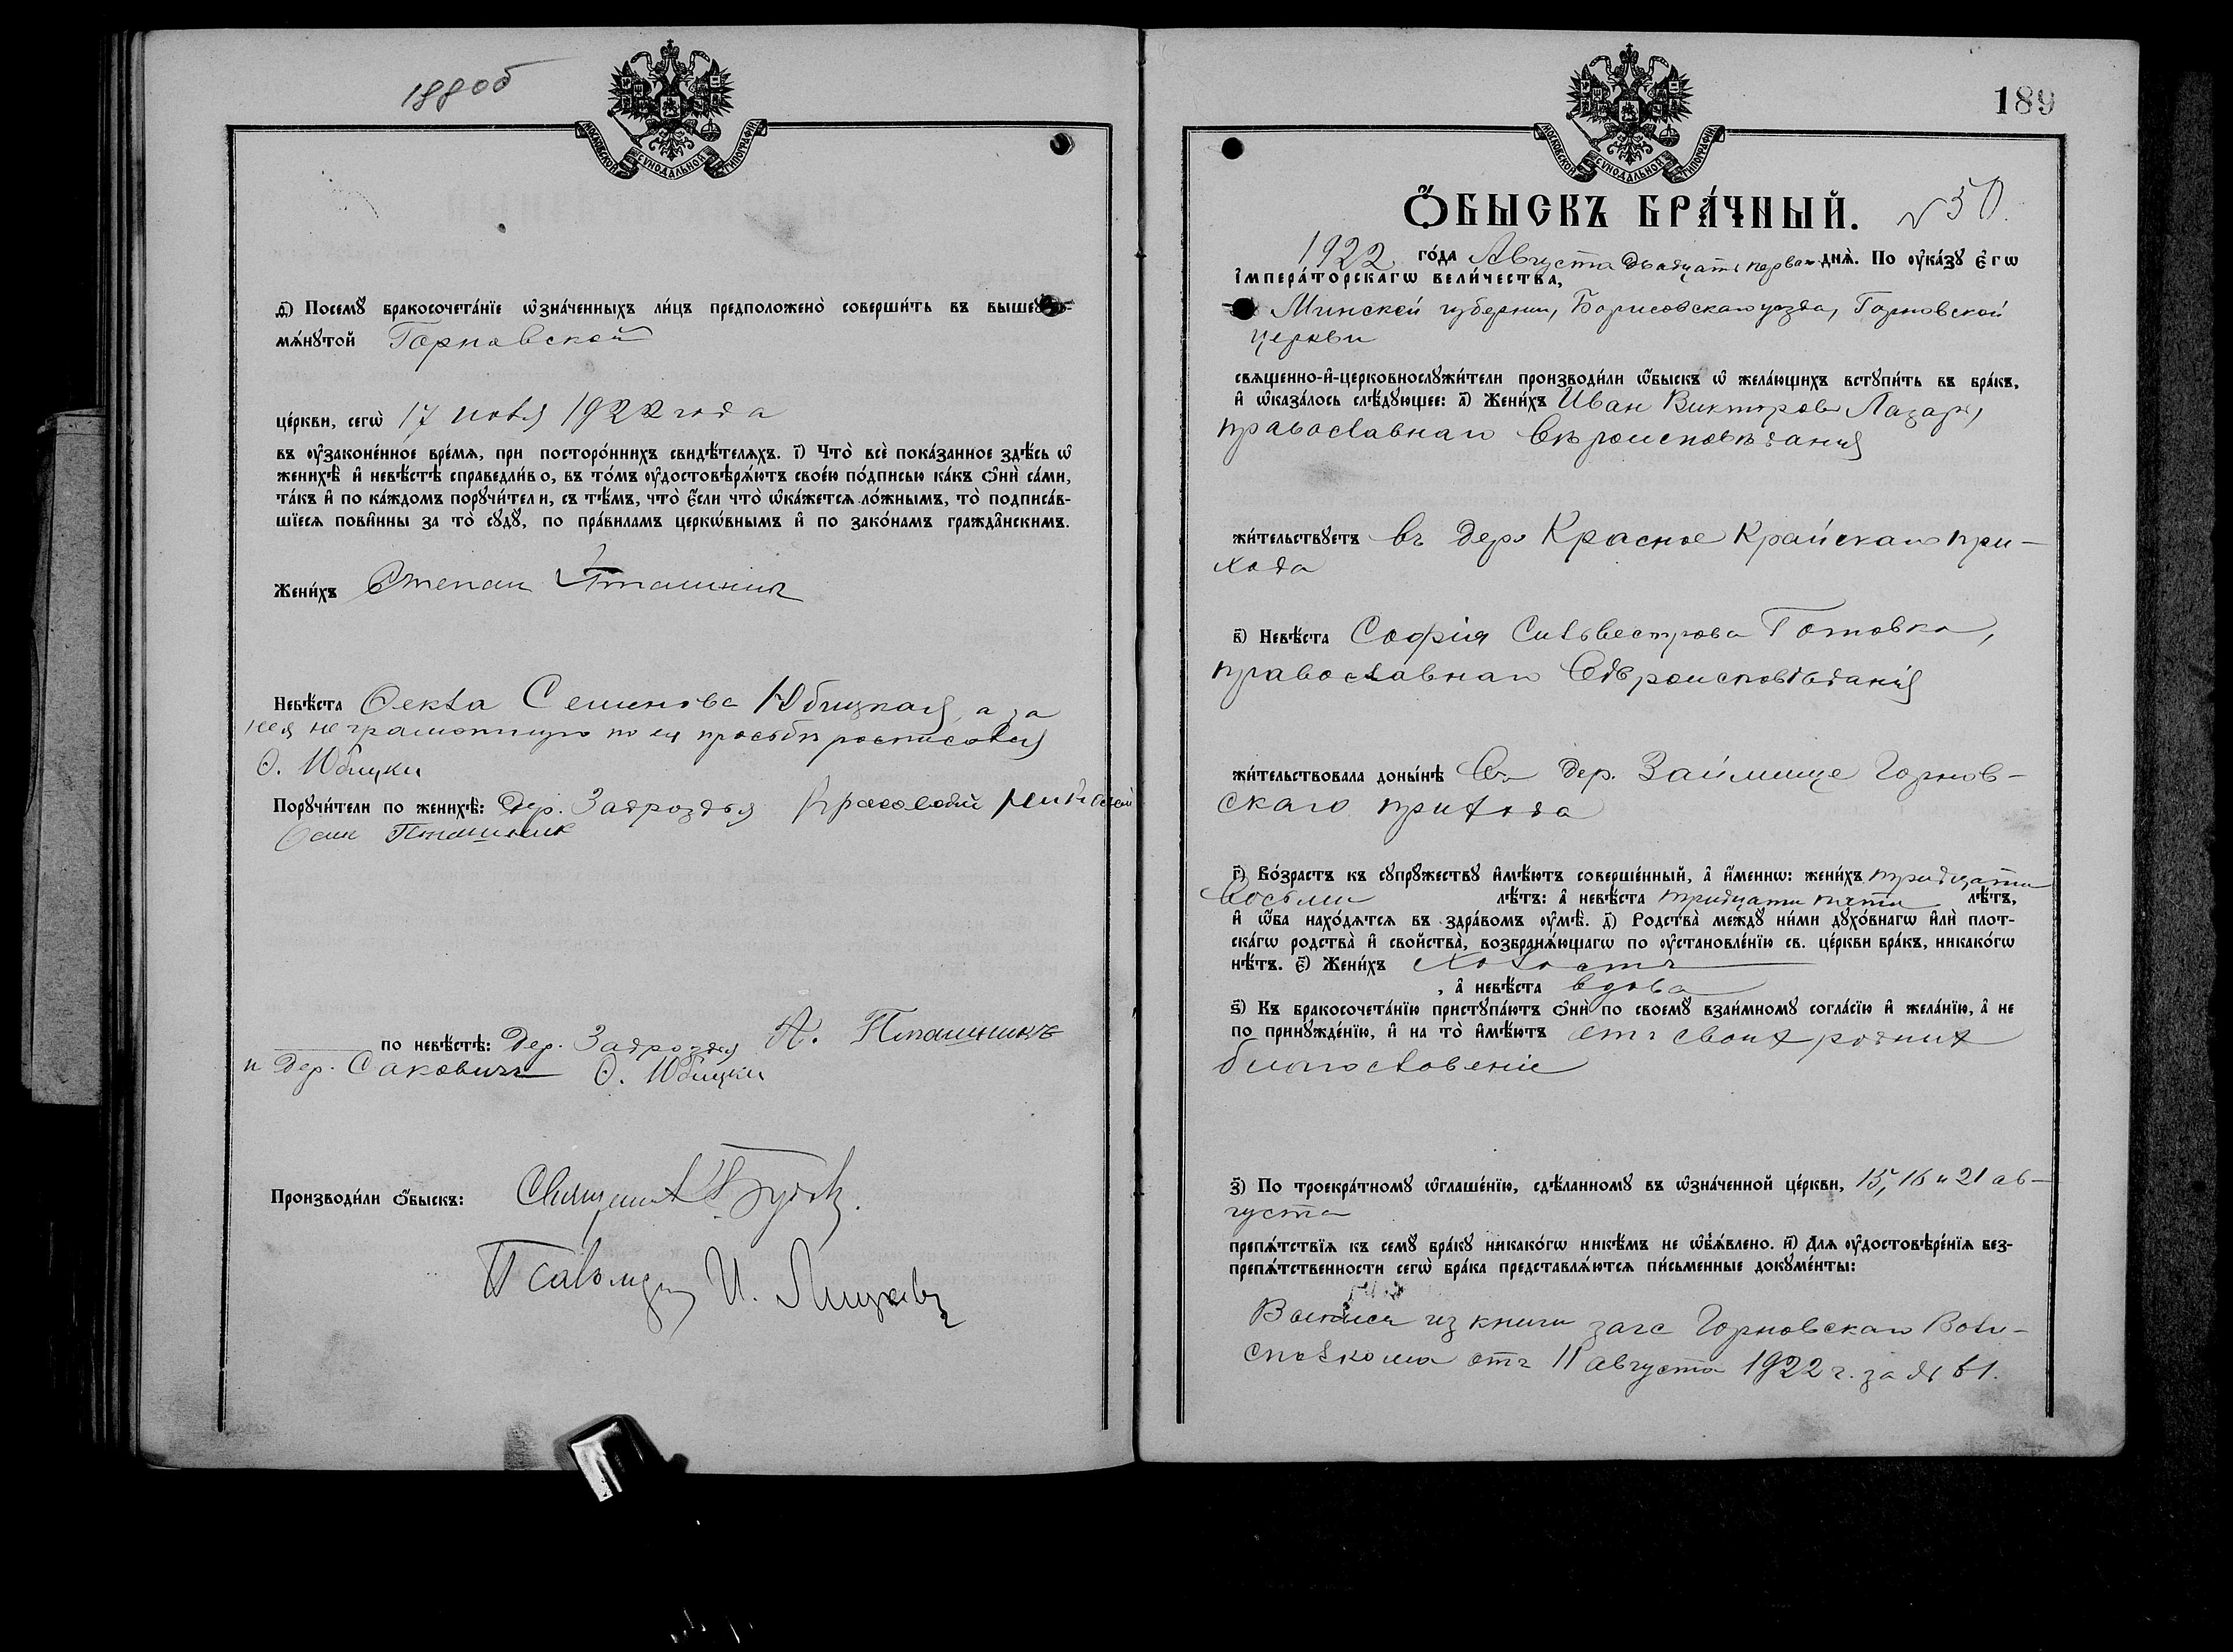 188об
МОСКОВСКОЙ СѴНОДАЛЬНОЙ ТИПОГРАФІИ
д҃) Посемꙋ̀ бракосочета́нїе ѡ҆зна́ченныхъ ли́цъ предположено̀ соверши́ть въ вышеꙋпо-
мѧ́нꙋтой Горновской
це́ркви, сегѡ̀ 17 июля 1922 года
въ оу҆законе́нное вре́мѧ, при посторо́ннихъ свидѣ́телѧхъ. і҃) Что̀ всѐ пока́занное здѣ́сь ѡ҆
женихѣ̀ и҆ невѣ́стѣ справедли́во, въ то́мъ оу҆достовѣрѧ́ютъ свое́ю по́дписью ка́къ ѻ҆нѝ са́ми,
та́къ и҆ по ка́ждомъ порꙋчи́тели, съ тѣ́мъ, что̀ є҆́сли что̀ ѡ҆ка́жетсѧ ло́жнымъ, то̀ подписа́в-
шїесѧ пови́нны за то̀ сꙋдꙋ̀, по пра́виламъ церкѡ́внымъ и҆ по зако́намъ гражда́нскимъ.
Жени́хъ Степан Пташник
Невѣ́ста Ѳекла Семенова Юбицкая, а за
нея неграмотную по ея просьбѣ росписался
Ѳ. Юбицки
Порꙋчи́тели по женихѣ̀: Дер. Задроздья
Пташник
по невѣ́стѣ: Дер. Задроздья А. Пташникъ
и дер. Саковичи Ѳ. Юбицки
Производи́ли ѻ҆́быскъ: Священ.
Псаломщ. И.
189
МОСКОВСКОЙ СѴНОДАЛЬНОЙ ТИПОГРАФІИ
Ѻ҆́БЫСКЪ БРА́ЧНЫЙ. №50.
1922 го́да Августа двадцать перваго днѧ̀. По оу҆ка́зꙋ є҆гѡ̀
і҆мпера́торскагѡ вели́чества,
Минской губернии, Борисовскаго уезда, Горновской
церкви
свѧщенно-и҆-церковнослꙋжи́тели производи́ли ѻ҆́быскъ ѡ҆ жела́ющихъ встꙋпи́ть въ бра́къ,
и҆ ѡ҆каза́лось слѣ́дꙋющее: а҃) Жени́хъ Иван Викторов Лазарь,
православнаго вѣроисповѣдания
жи́тельствꙋетъ въ дер. Красное Крайскаго при-
хода
в҃) Невѣ́ста Софія Сильвестрова Готовка,
православнаго вѣроисповѣданія
жи́тельствовала доны́нѣ въ дер. Займище Горнов-
скаго прихода
г҃) Во́зрастъ къ сꙋпрꙋ́жествꙋ и҆мѣ́ютъ соверше́нный, а҆ и҆́меннѡ: жени́хъ тридцати
восьми лѣ́тъ: а҆ невѣ́ста тридцати пяти лѣ́тъ,
и҆ ѻ҆́ба нахо́дѧтсѧ въ здра́вомъ оу҆мѣ̀. д҃) Родства̀ междꙋ̀ ни́ми дꙋхо́внагѡ и҆лѝ плот-
ска́гѡ родства̀ и҆ свойства̀, возбранѧ́ющагѡ по оу҆становле́нїю св. це́ркви бра́къ, никако́гѡ
нѣ́тъ. є҃) Жени́хъ холостъ
, а҆ невѣ́ста вдова
ѕ҃) Къ бракосочета́нїю пристꙋпа́ютъ ѻ҆нѝ по своемꙋ̀ взаи́мномꙋ согла́сїю и҆ жела́нїю, а҆ не
по принꙋжде́нїю, и҆ на то̀ и҆мѣ́ютъ отъ своих родних
благословеніе
з҃) По троекра́тномꙋ ѡ҆глаше́нїю, сдѣ́ланномꙋ въ ѡ҆зна́ченной це́ркви, 15, 16 и 21 ав-
густа
препѧ́тствїѧ къ семꙋ̀ бра́кꙋ никако́гѡ никѣ́мъ не ѡ҆б̾ѧ́влено. и҃) Длѧ оу҆достовѣре́нїѧ без-
препѧ́тственности сегѡ̀ бра́ка представлѧ́ютсѧ пи́сьменные докꙋме́нты:
Выписи из книги загс Горновскаго Воли-
сполкома отъ 11 августа 1922 г. за № 61.